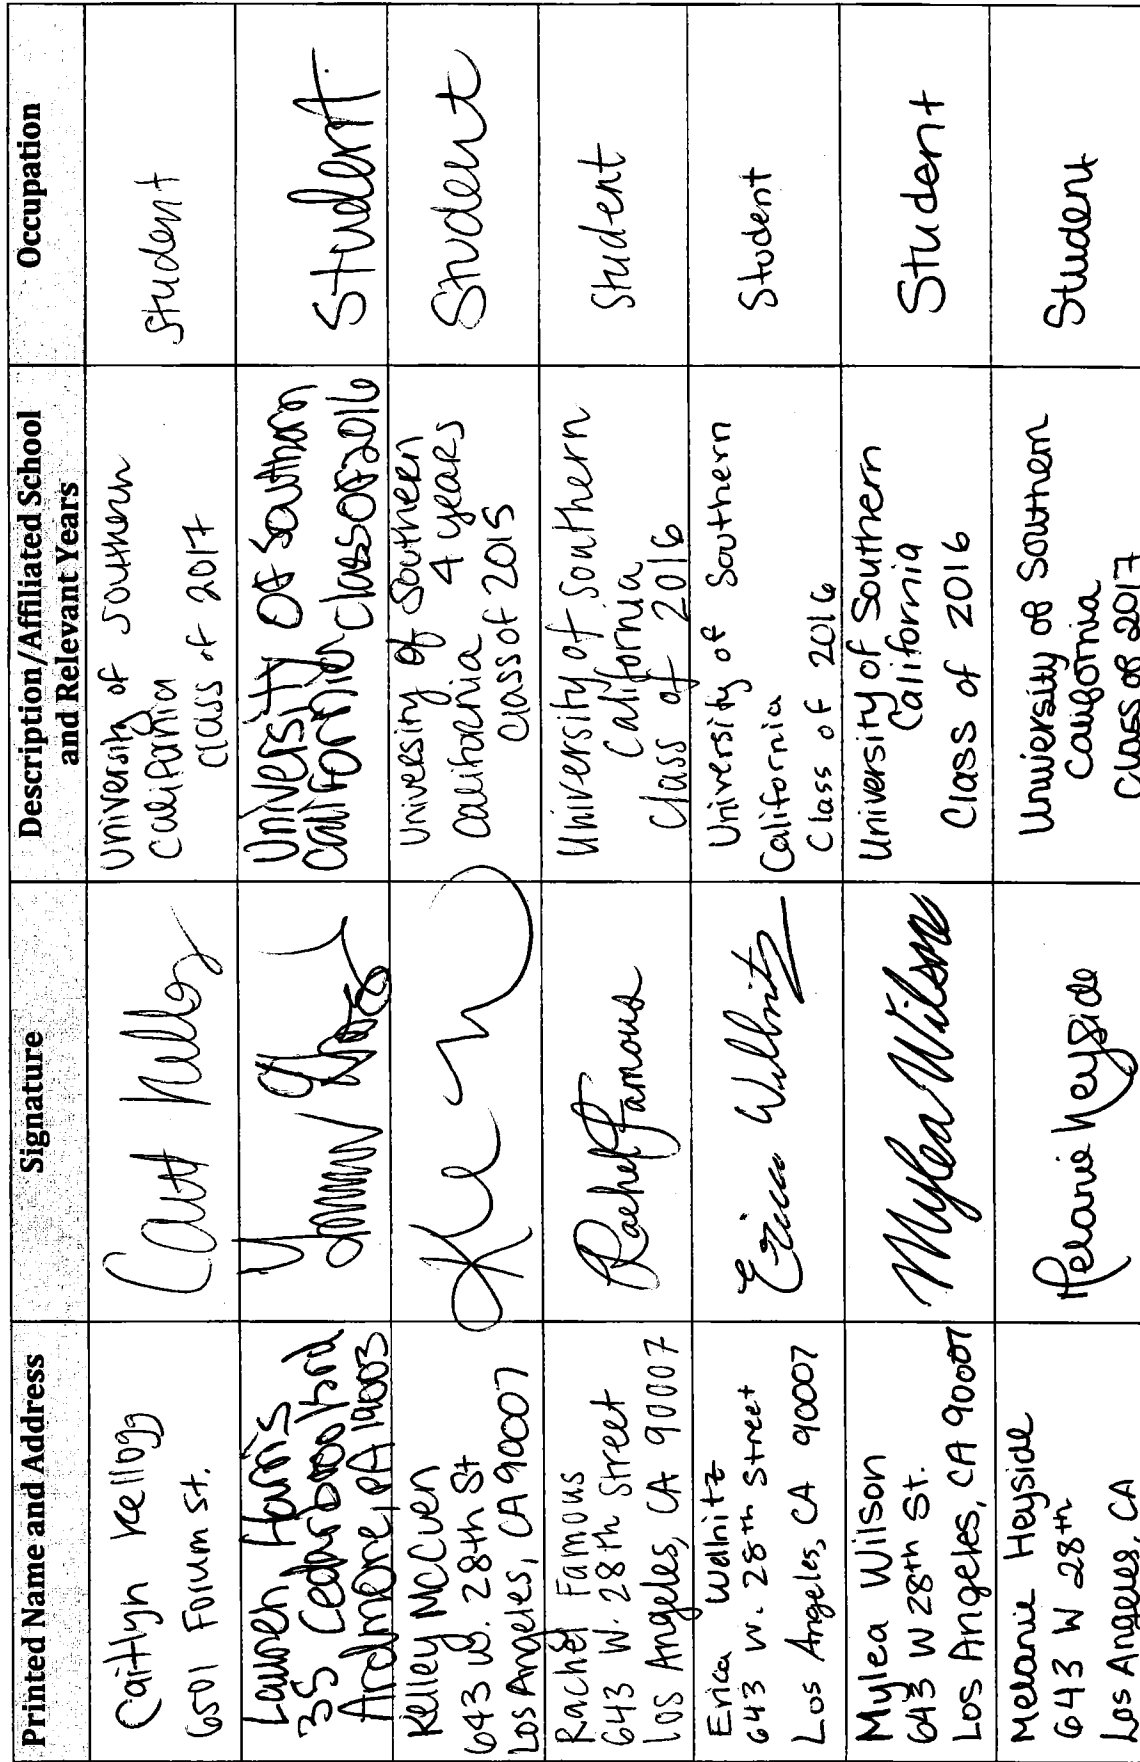 Printed Name and Address
Signature
Description/Affiliated School
and Relevant Years
Occupation
Caitlyn Kellogg
6501 Forum St.
University of Southern
California
Class of 2017
Student
Lauren Harris
35 Cedarbrook rd
Ardmore, PA 19003
University Of Southern
California class of 2016
Student
Kelley McCuen
643 W. 28th St
Los Angeles, CA 90007
University of Southern
California 4 years
class of 2015
Student
Rachel Famous
643 W. 28th Street
Los Angeles, CA 90007
Rachel Famous
University of Southern
California
Class of 2016
Student
Erica Wellnitz
643 W. 28th Street
Los Angeles, CA 90007
Erica Wellnitz
University of Southern
California
Class of 2016
Student
Mylea Wilson
643 W 28th St.
Los Angeles, CA 90007
Mylea Wilson
University of Southern
California
Class of 2016
Student
Melanie Heyside
643 W 28th
Los Angeles, CA
Melanie Heyside
University of Southern
California
Class of 2017
Student